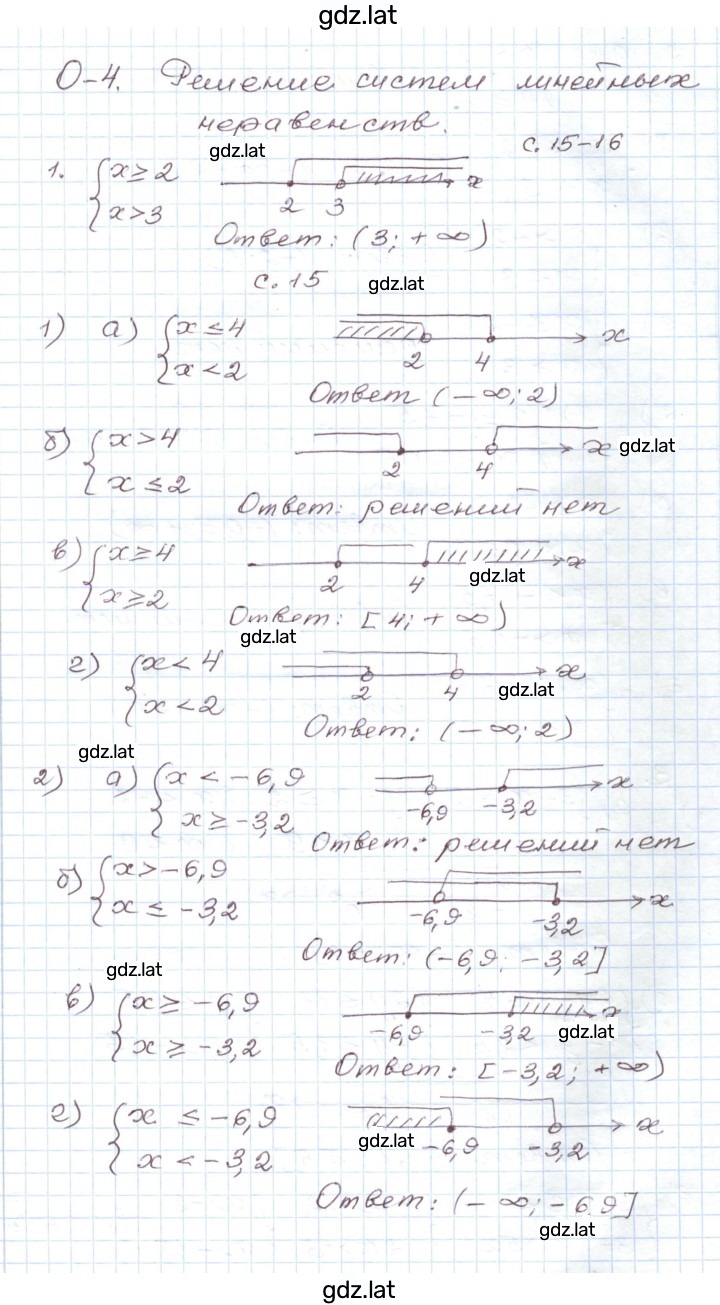 gdz.lat
О-4. Решение систем линейных
неравенств.
с. 15-16
gdz.lat
1. { x ≥ 2
x > 3
2 3 x
Ответ: (3; +∞)
с. 15 gdz.lat
1) а) { x ≤ 4
x < 2
2 4 x
Ответ (-∞; 2)
б) { x > 4
x ≤ 2
2 4 x gdz.lat
Ответ: решений нет
в) { x ≥ 4
x ≥ 2
2 4 x
gdz.lat
Ответ: [4; +∞)
gdz.lat
г) { x < 4
x < 2
2 4 x
gdz.lat
Ответ: (-∞; 2)
gdz.lat
2) а) { x < -6,9
x ≥ -3,2
-6,9 -3,2 x
Ответ: решений нет
б) { x > -6,9
x ≤ -3,2
-6,9 -3,2 x
Ответ: (-6,9; -3,2]
gdz.lat
в) { x ≥ -6,9
x ≥ -3,2
-6,9 -3,2 x
gdz.lat
Ответ: [-3,2; +∞)
г) { x ≤ -6,9
x < -3,2
-6,9 -3,2 x
gdz.lat
Ответ: (-∞; -6,9]
gdz.lat
gdz.lat